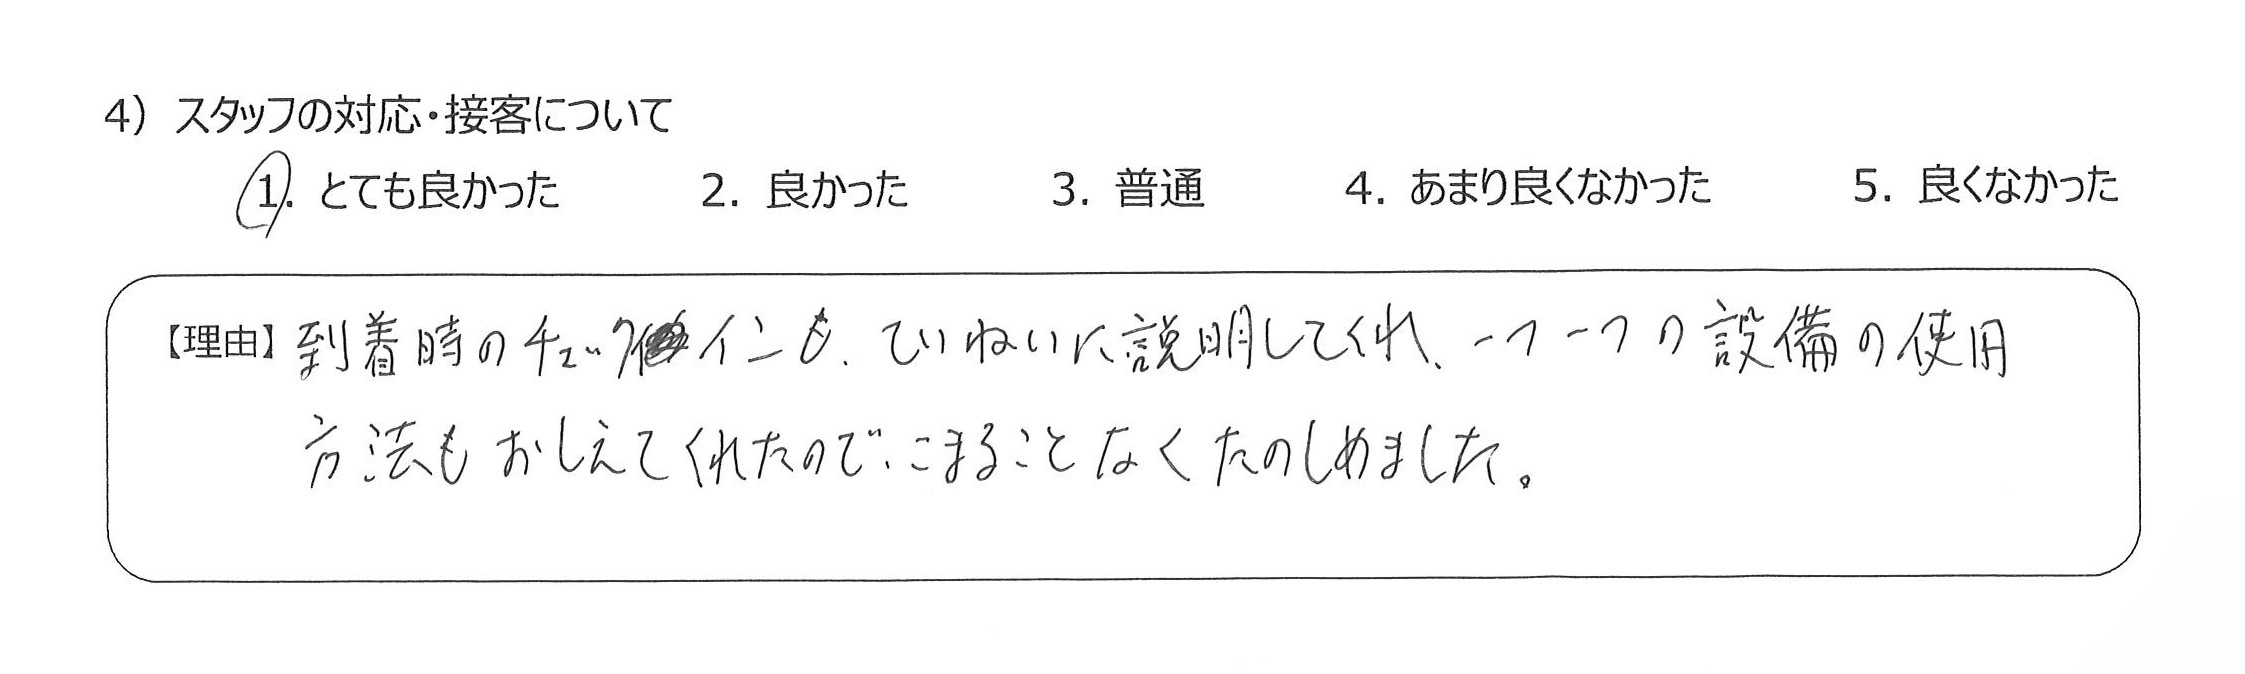 4) スタッフの対応・接客について
1. とても良かった 2. 良かった 3. 普通 4. あまり良くなかった 5. 良くなかった
【理由】到着時のチェックインも、ていねいに説明してくれ、一つ一つの設備の使用
方法もおしえてくれたので、こまることなくたのしめました。